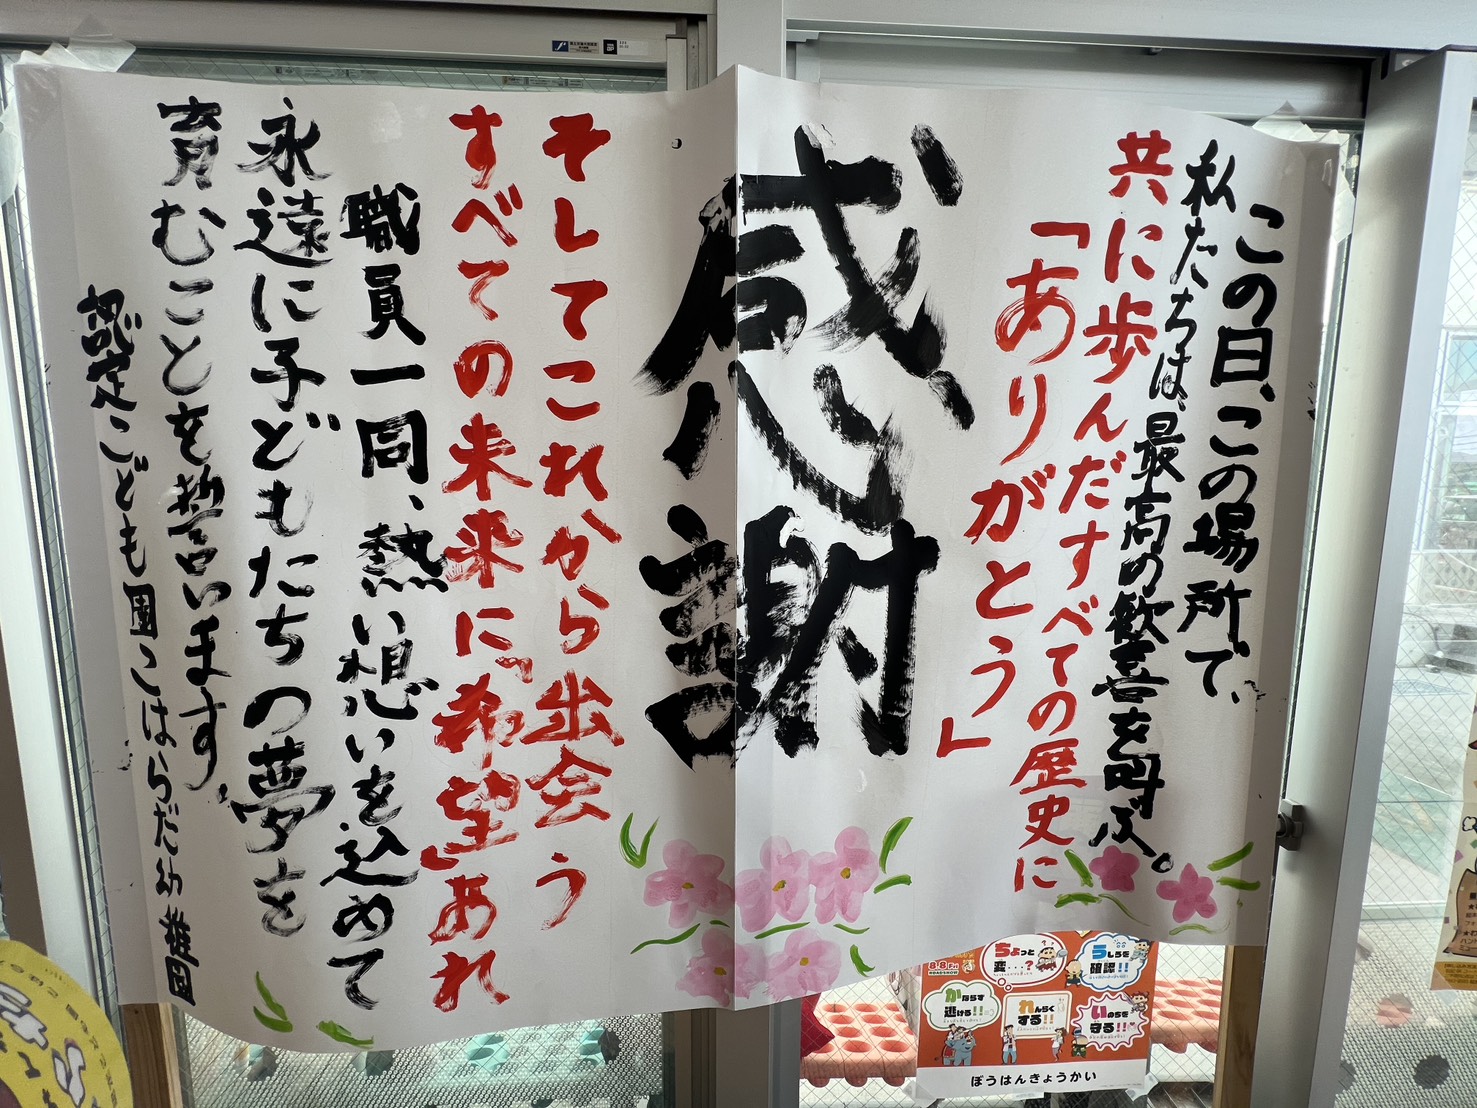 この日、この場所で、
私たちは、最高の歓喜を叫ぶ。
共に歩んだすべての歴史に
「ありがとう」
感謝
そしてこれから出会う
すべての未来に「希望」あれ
職員一同、熱い想いを込めて
永遠に子どもたちの夢を
育むことを誓います。
認定こども園こはらだ幼稚園
8.8 Fri
ROADSHOW
ちょっと
変・・・?
うしろを
確認!!
かならず
逃げる!!
れんらく
する!!
いのちを
守る!!
ぼうはんきょうかい